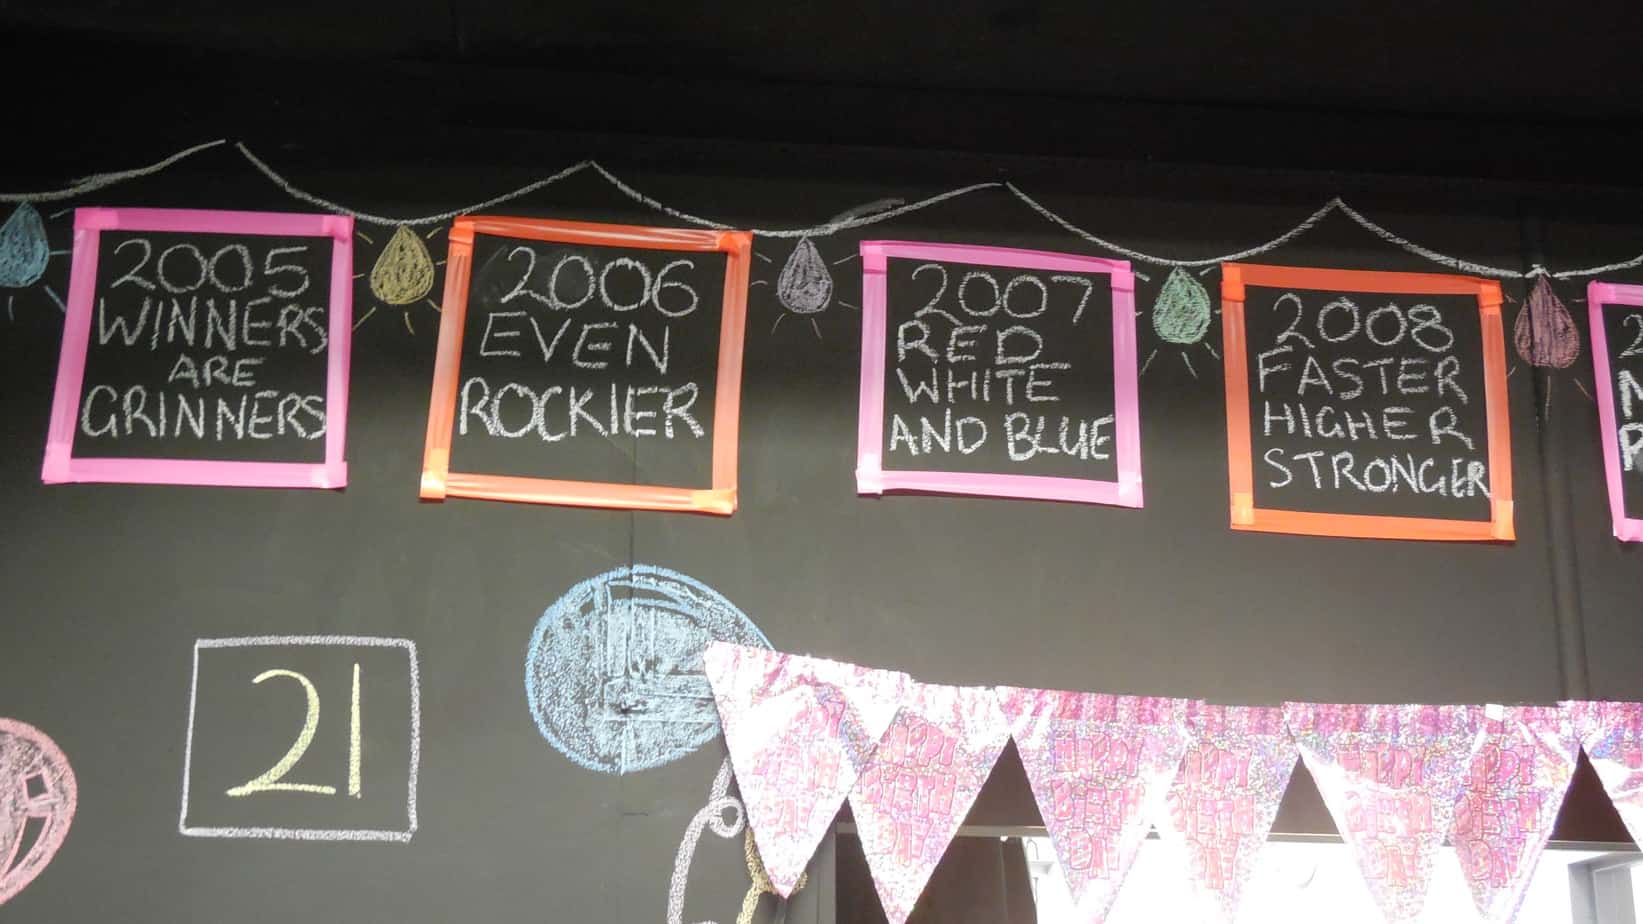 2005
WINNERS
ARE
GRINNERS
2006
EVEN
ROCKIER
2007
RED
WHITE
AND BLUE
2008
FASTER
HIGHER
STRONGER
21
HAPPY
BIRTH
DAY
HAPPY
BIRTH
DAY
HAPPY
BIRTH
DAY
HAPPY
BIRTH
DAY
HAPPY
BIRTH
DAY
HAPPY
BIRTH
DAY